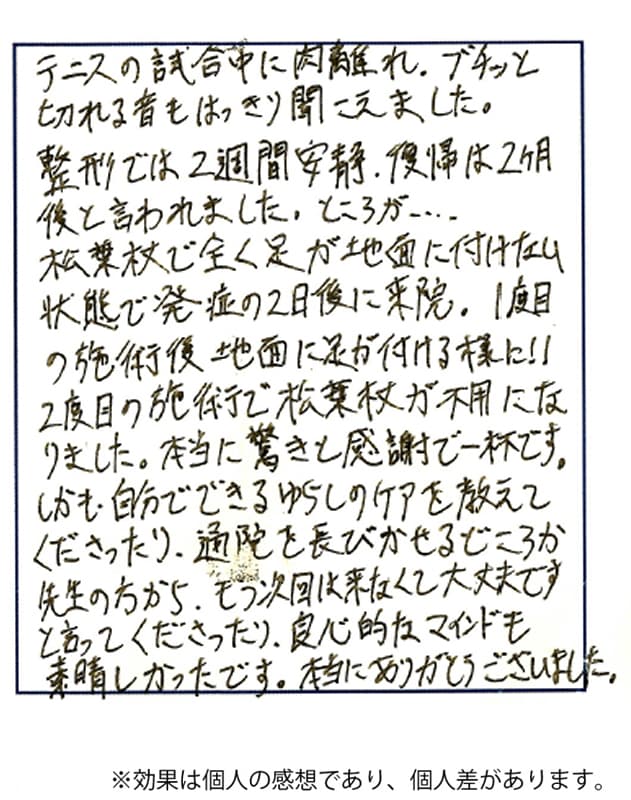 テニスの試合中に肉離れ、ブチッと
切れる音もはっきり聞こえました。
整形では2週間安静、復帰は2ヶ月
後と言われました。ところが‥‥
松葉杖で全く足が地面に付けない
状態で発症の2日後に来院。1度目
の施術後地面に足が付ける様に!!
2度目の施術で松葉杖が不用にな
りました。本当に驚きと感謝で一杯です。
しかも自分でできるゆらしのケアを教えて
くださったり、通院を長びかせるどころか
先生の方から、もう次回は来なくて大丈夫です
と言ってくださったり、良心的なマインドも
素晴しかったです。本当にありがとうございました。
※効果は個人の感想であり、個人差があります。